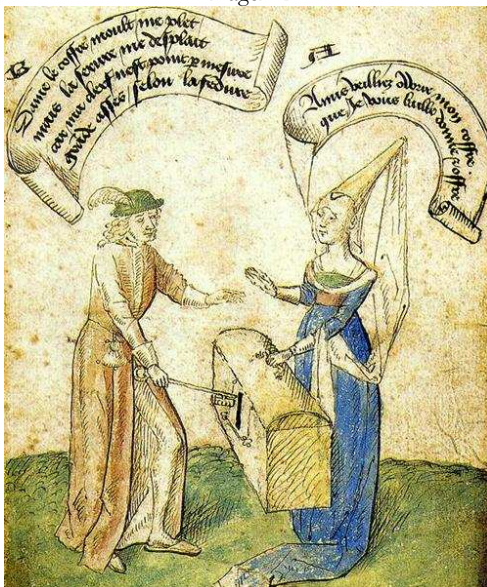 B
Dame le coffre moult me plet
mais la serure me desplait
car ma clef nest point p mesure
grāde asses selon la fedure
A
Amis veilliez mon coffre
que Je vous baille donne offre